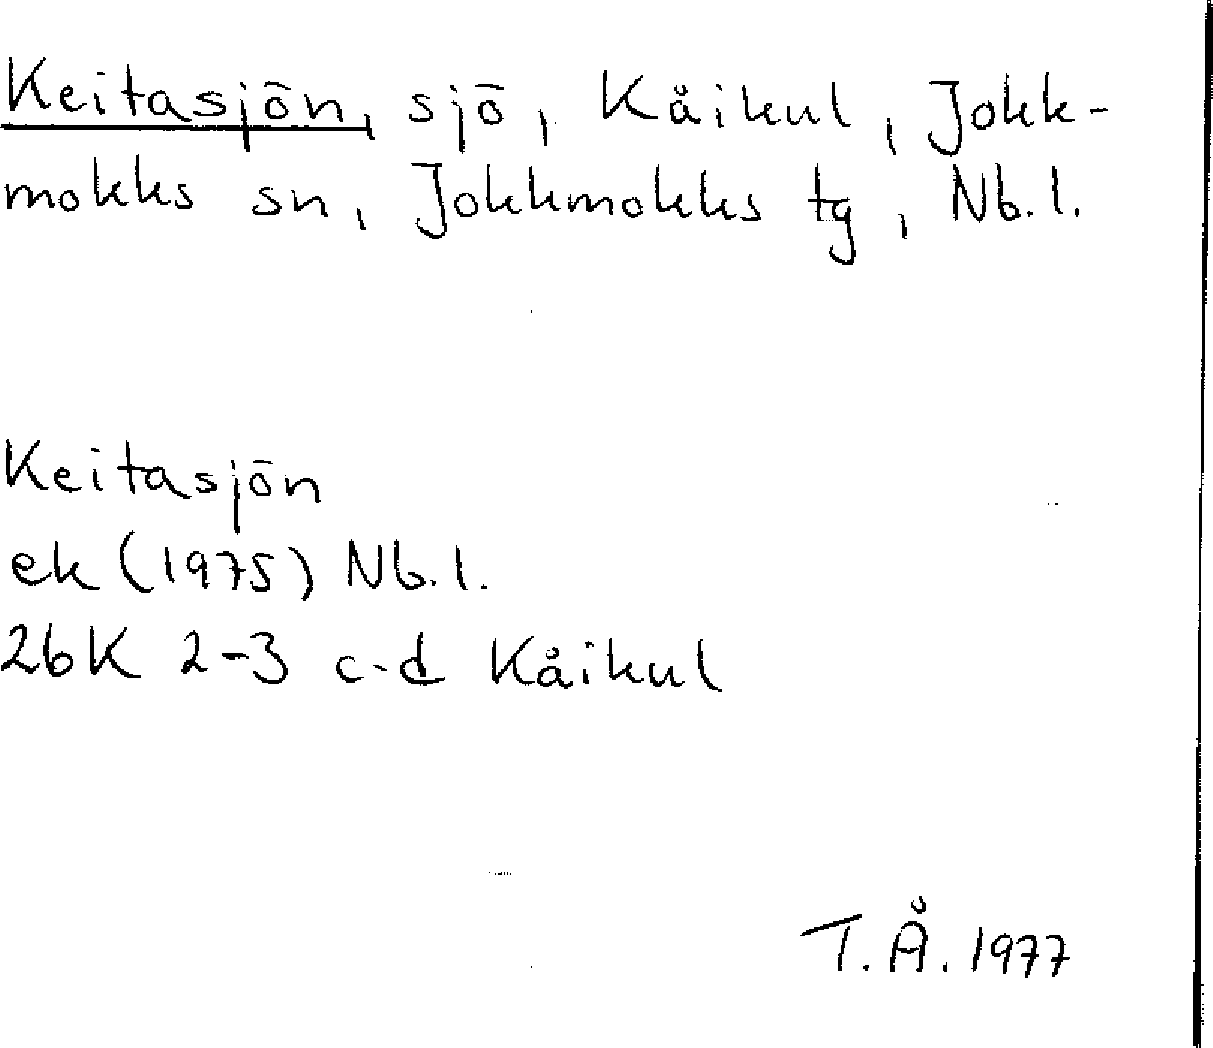 Keitasjön, sjö, Kåikul, Jokk-
mokks sn, Jokkmokks tg, Nb.l.
Keitasjön
ek (1975) Nb.l.
26K 2-3 c-d Kåikul
T.Å. 1977